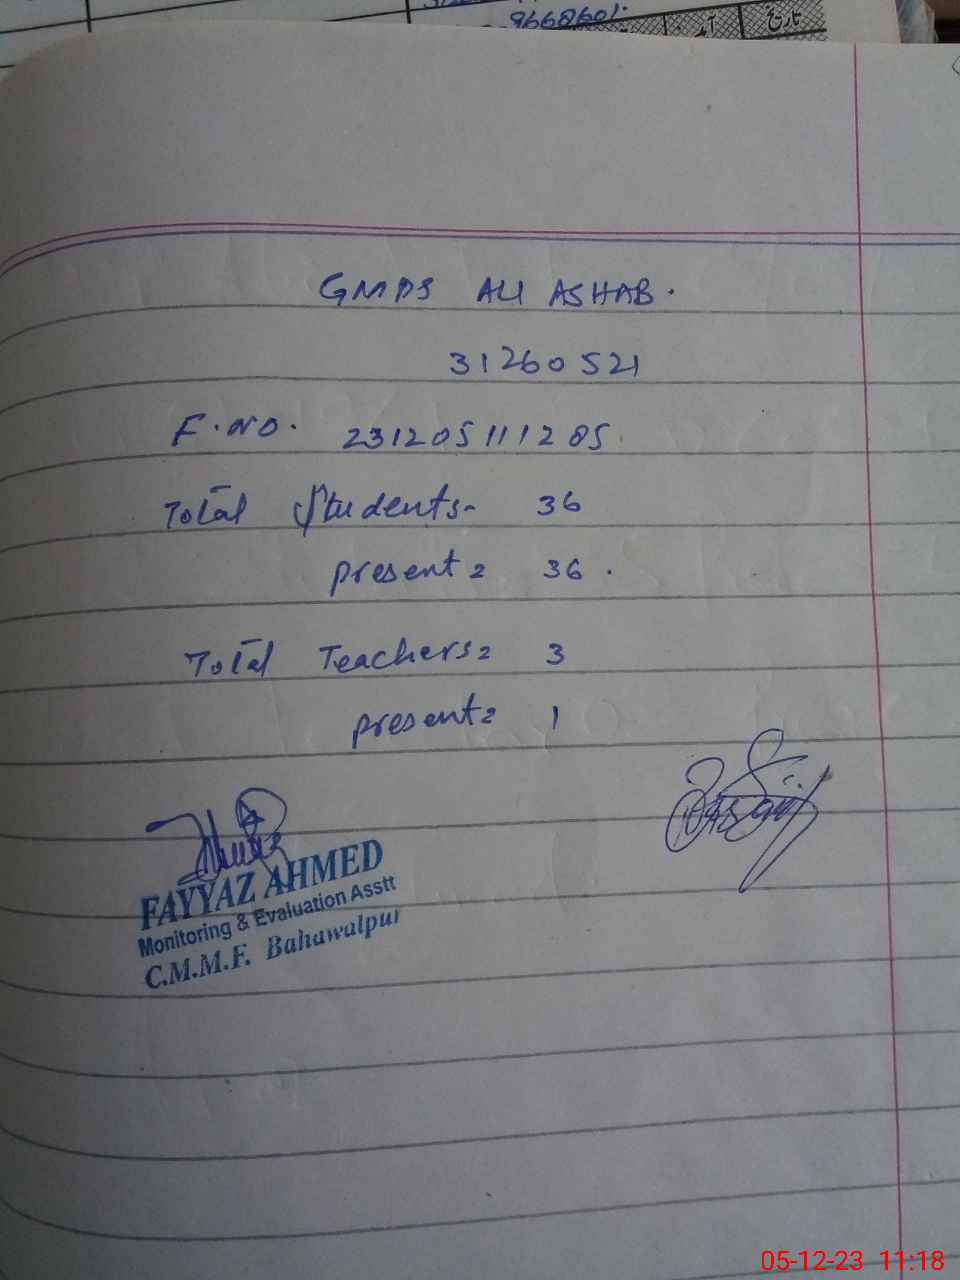 9668601.
تاریخ
GMPS ALI ASHAB.
31260521
F.NO. 231205111285
Total Students- 36
present= 36.
Total Teachers= 3
present= 1
FAYYAZ AHMED
Monitoring & Evaluation Asstt
C.M.M.F. Bahawalpur
05-12-23 11:18